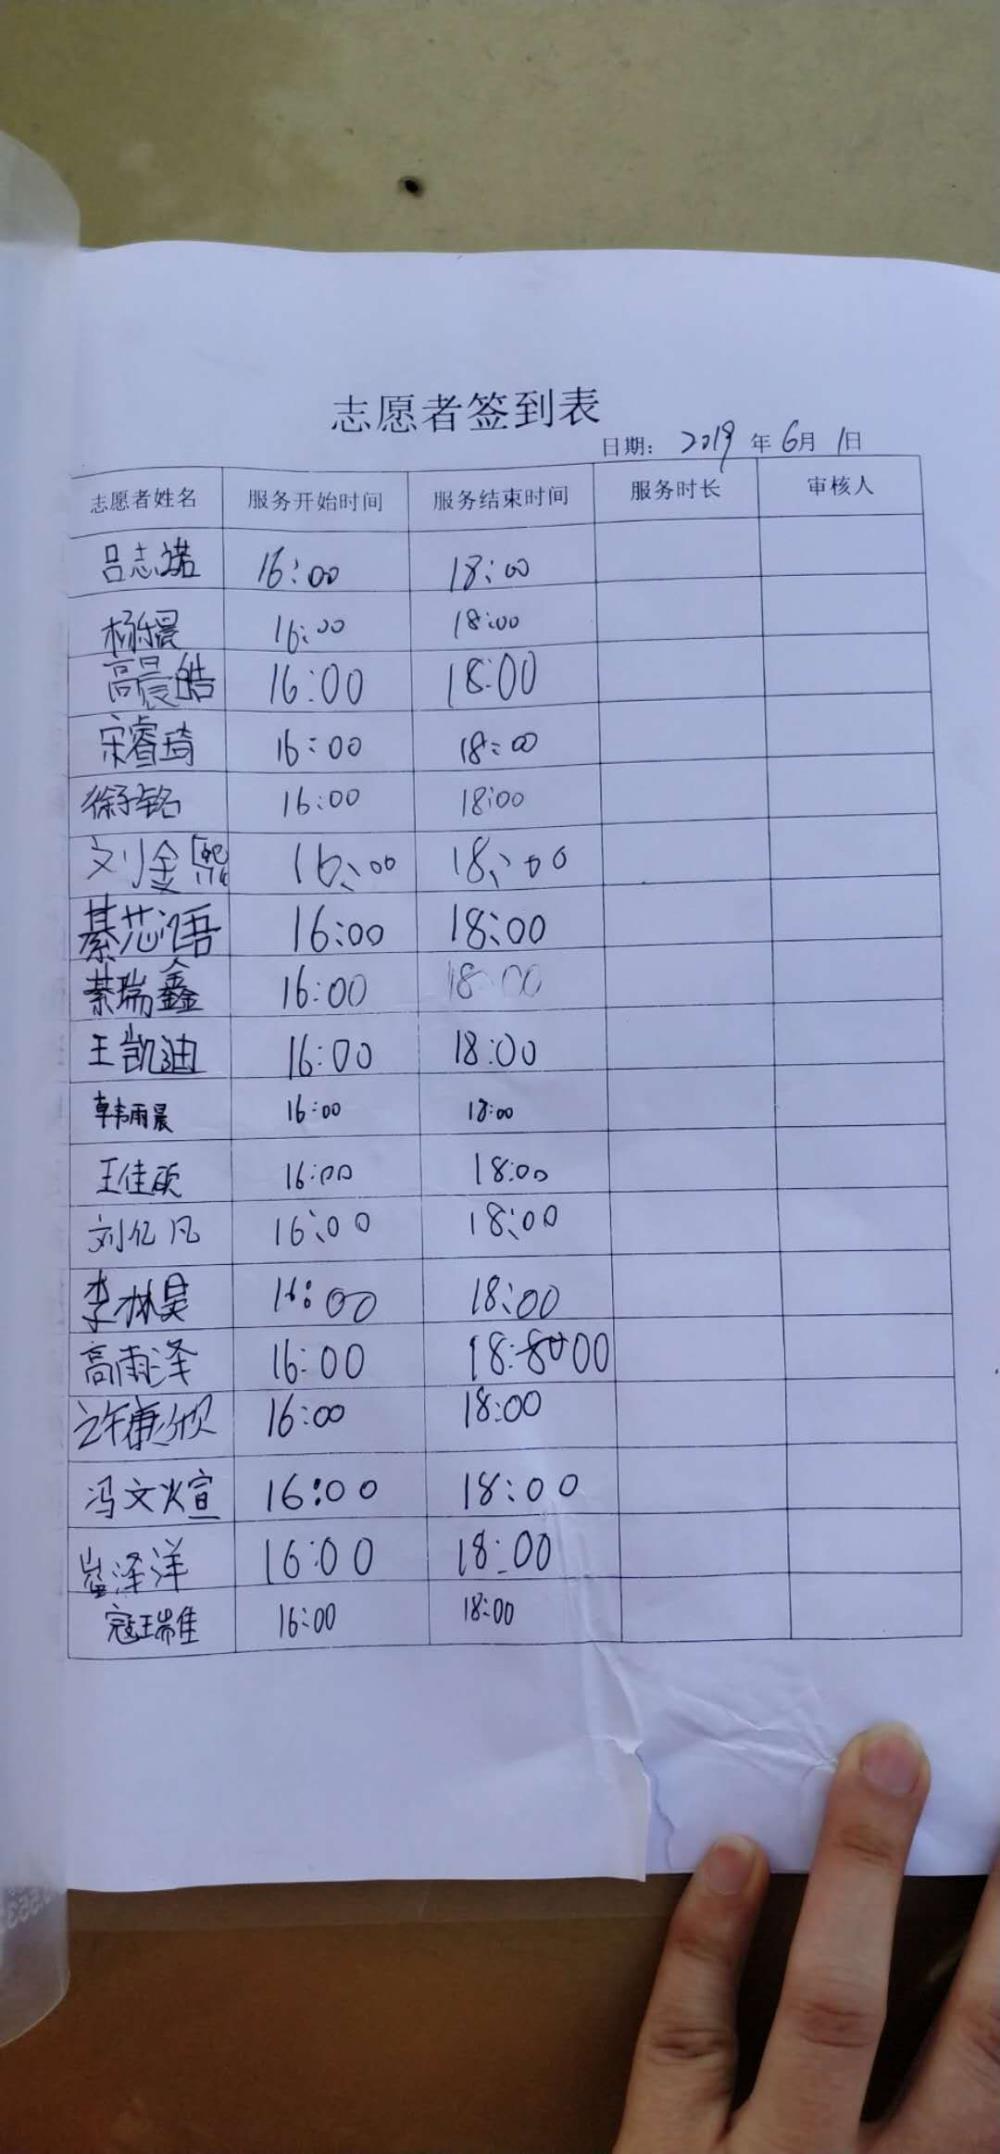 志愿者签到表
日期： 2019 年 6月 1日
志愿者姓名 服务开始时间 服务结束时间 服务时长 审核人
吕志诺 16:00 18:00
16:00 18:00
高晨皓 16:00 18:00
宋睿琦 16:00 18:00
徐子铭 16:00 18:00
刘金熙 16:00 18:00
綦芯语 16:00 18:00
綦瑞鑫 16:00 18:00
王凯迪 16:00 18:00
韩雨晨 16:00 18:00
王佳硕 16:00 18:00
刘亿凡 16:00 18:00
李林昊 16:00 18:00
高雨泽 16:00 18:00
许康欣 16:00 18:00
冯文煊 16:00 18:00
泽洋 16:00 18:00
寇瑞隹 16:00 18:00